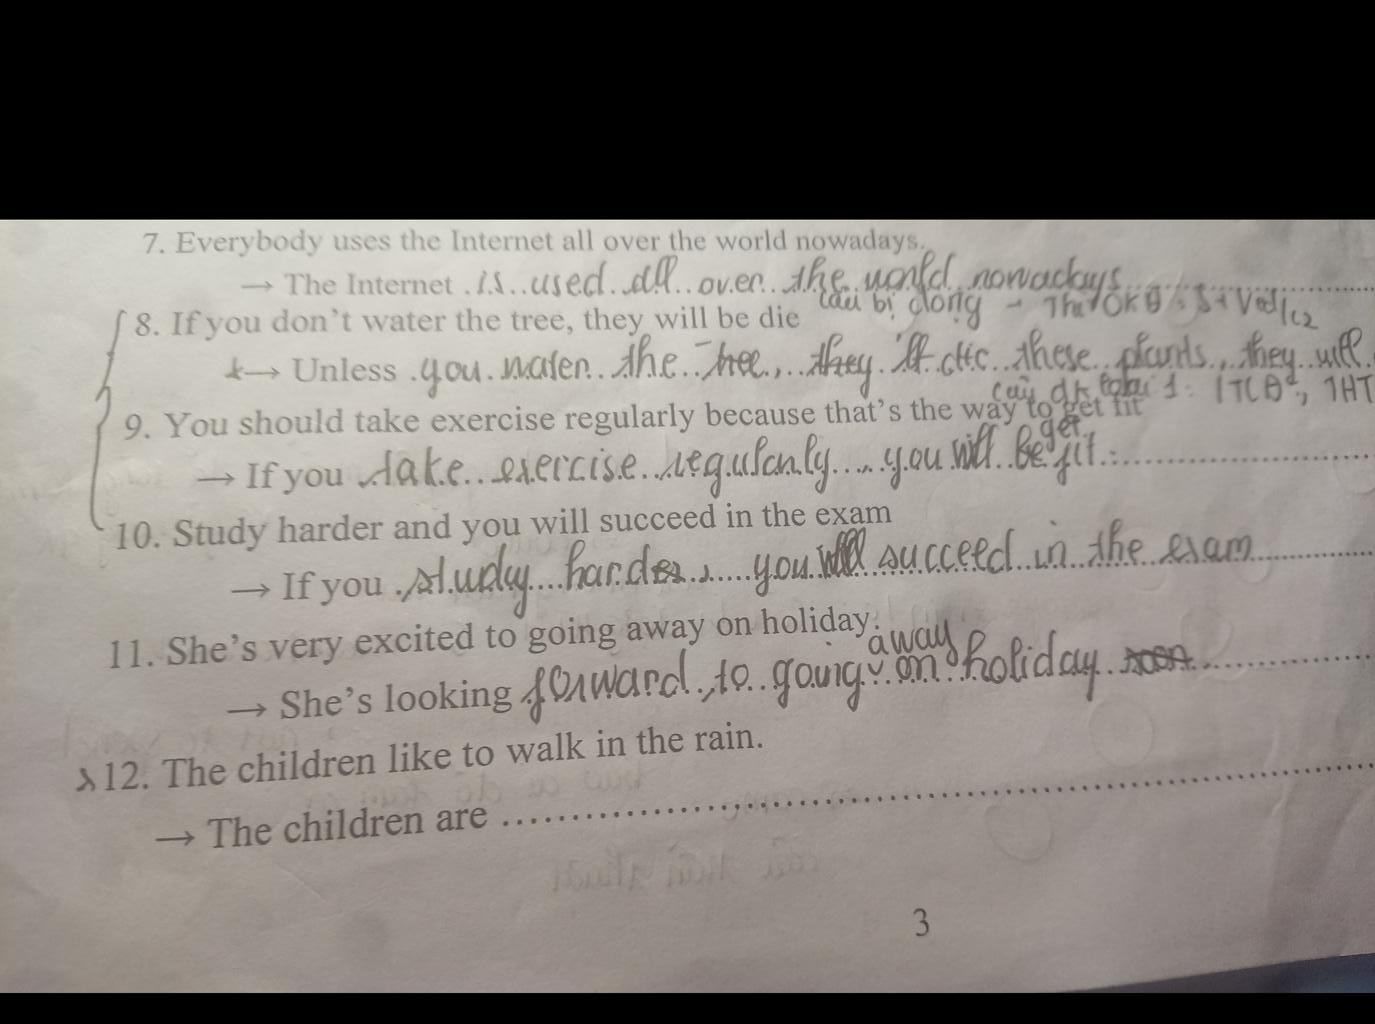 7. Everybody uses the Internet all over the world nowadays.
→ The Internet is used all over the world nowadays
câu bị động - S + V
8. If you don't water the tree, they will be die
→ Unless you water the tree, they die these plants, they will
câu đk loại 1:
9. You should take exercise regularly because that's the way to get fit
get
→ If you take exercise regularly you will be fit
10. Study harder and you will succeed in the exam
→ If you study harder, you will succeed in the exam
11. She's very excited to going away on holiday.
away
→ She's looking forward to going on holiday
12. The children like to walk in the rain.
→ The children are
3